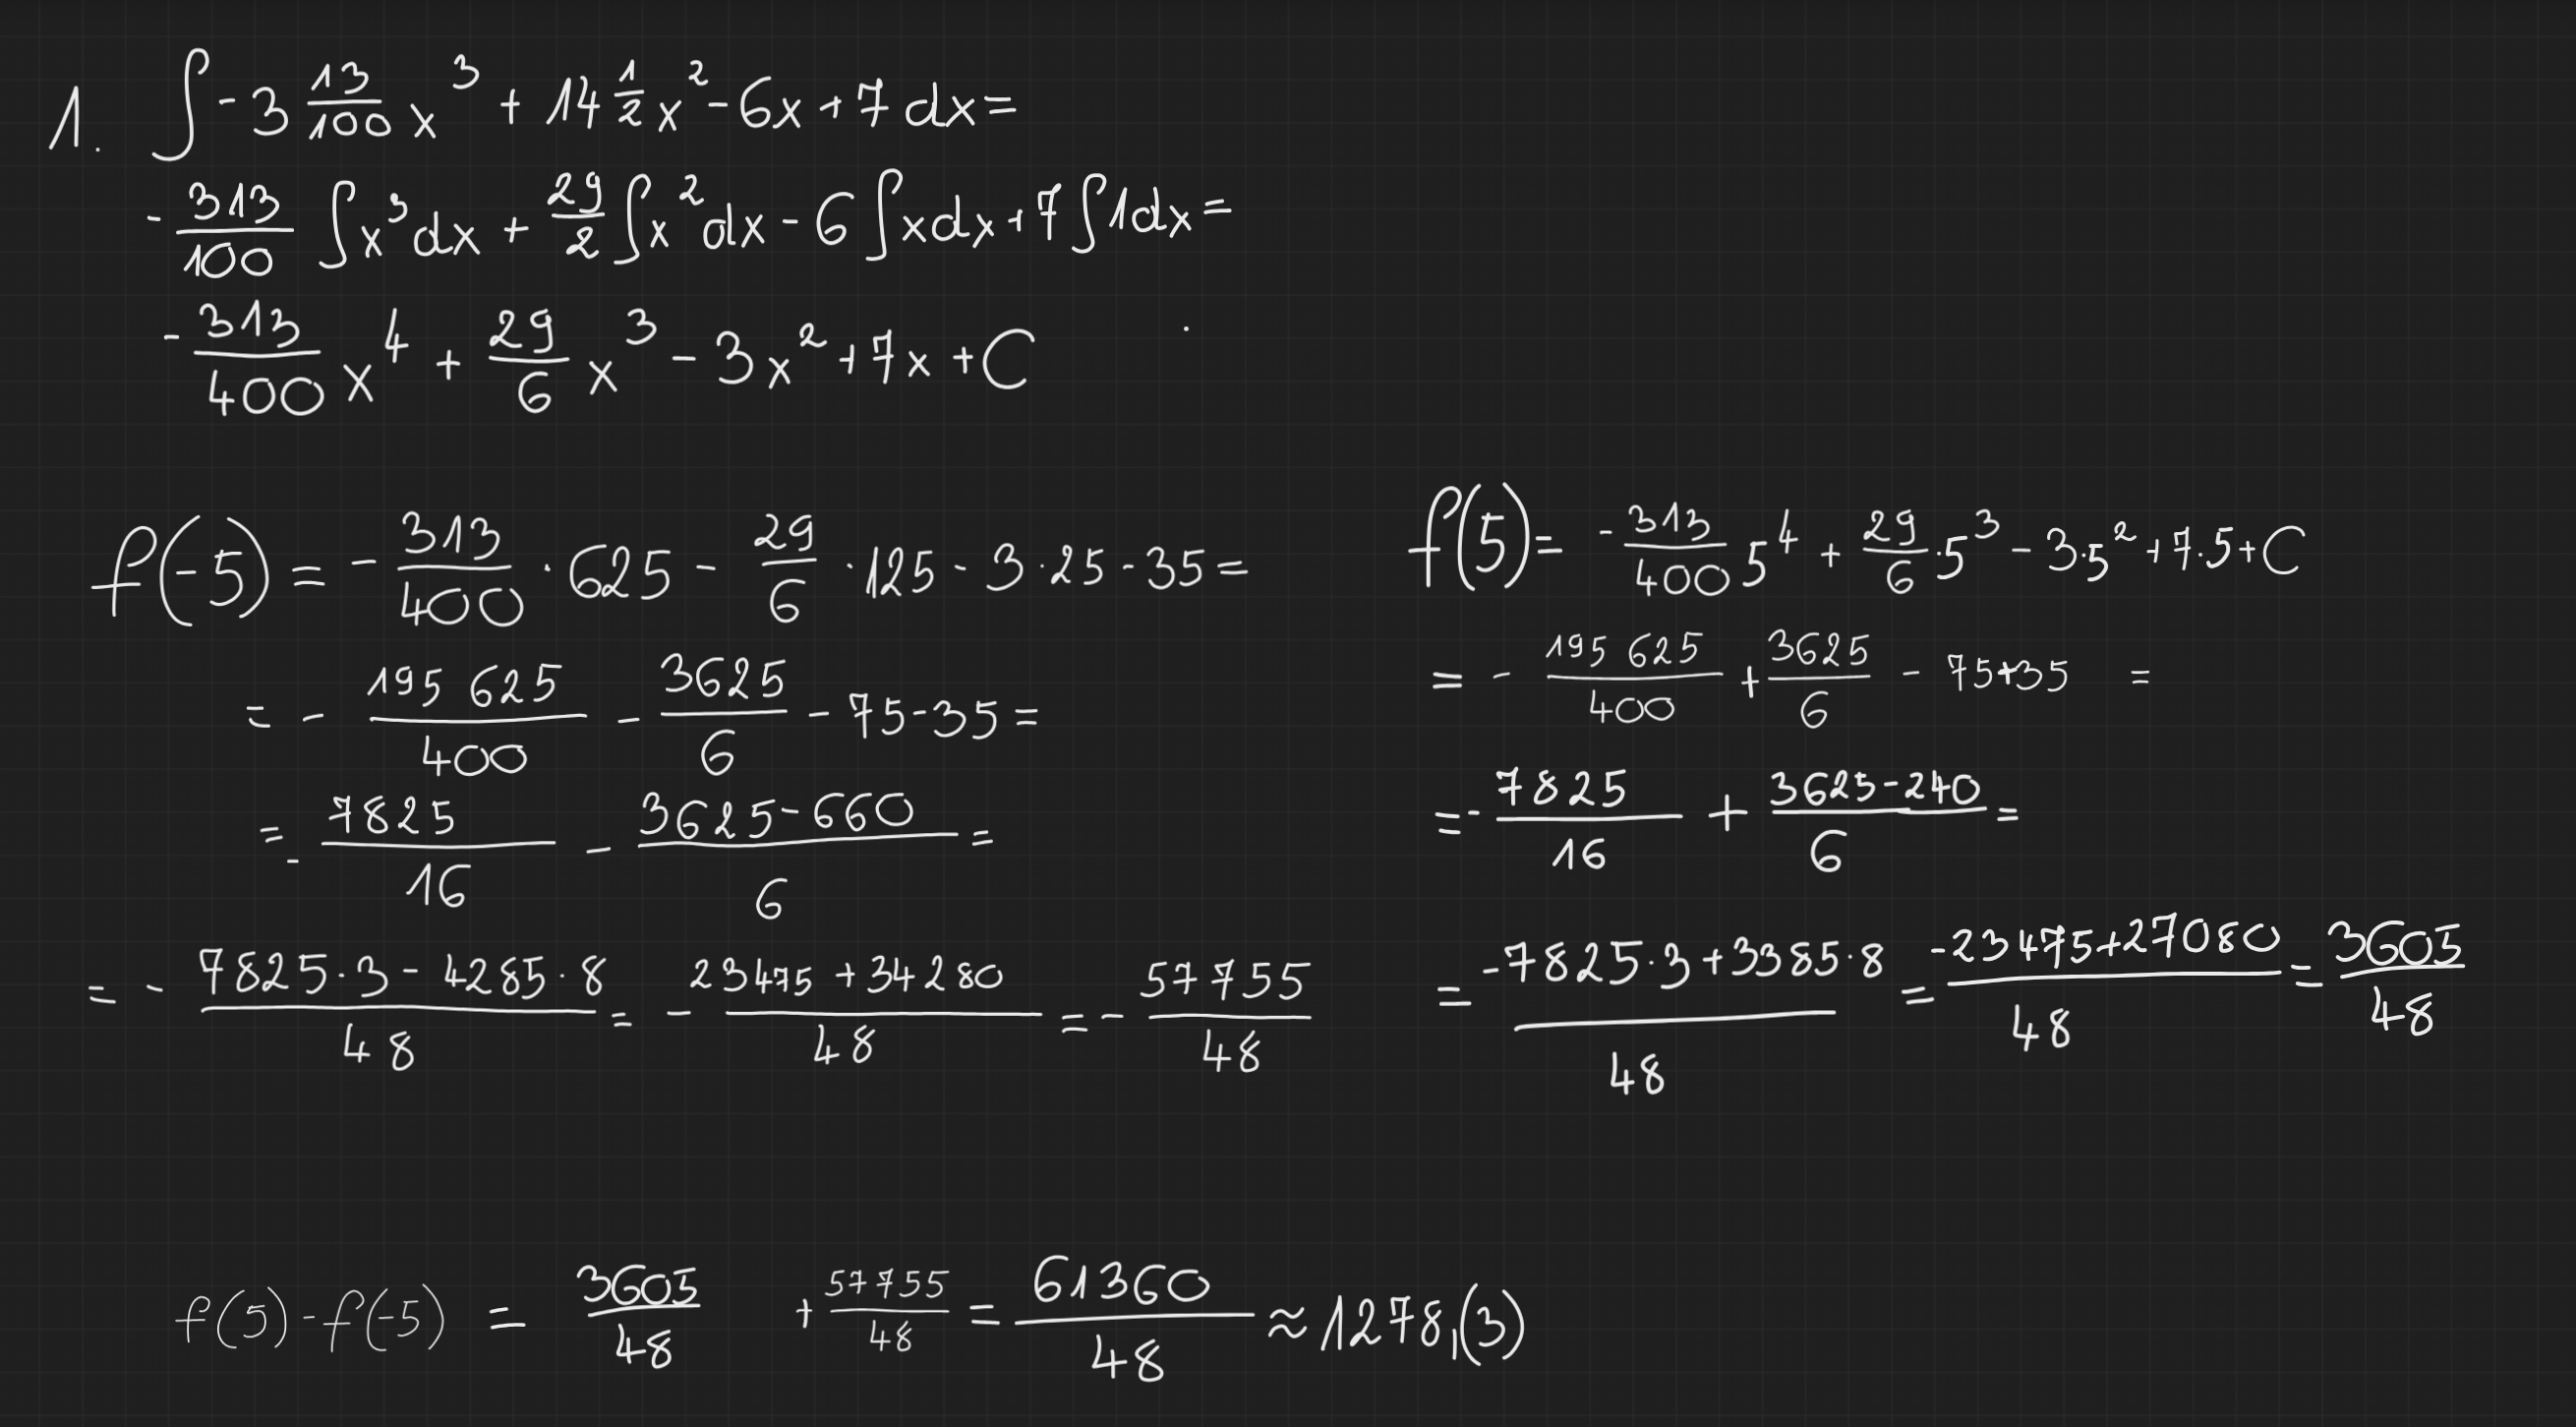 1. ∫ -3 13/100 x³ + 14 1/2 x² - 6x + 7 dx =
- 313/100 ∫x³dx + 29/2 ∫x²dx - 6∫xdx + 7∫1dx =
- 313/400 x⁴ + 29/6 x³ - 3x² + 7x + C
f(-5) = - 313/400 · 625 - 29/6 · 125 - 3 · 25 - 35 =
= - 195 625/400 - 3625/6 - 75 - 35 =
= - 7825/16 - (3625 - 660)/6 =
= - (7825 · 3 - 4285 · 8)/48 = - (23475 + 34280)/48 = - 57755/48
f(5) = - 313/400 5⁴ + 29/6 · 5³ - 3 · 5² + 7 · 5 + C
= - 195 625/400 + 3625/6 - 75 + 35 =
= - 7825/16 + (3625 - 240)/6 =
= (-7825 · 3 + 3385 · 8)/48 = (-23475 + 27080)/48 = 3605/48
f(5) - f(-5) = 3605/48 + 57755/48 = 61360/48 ≈ 1278,(3)